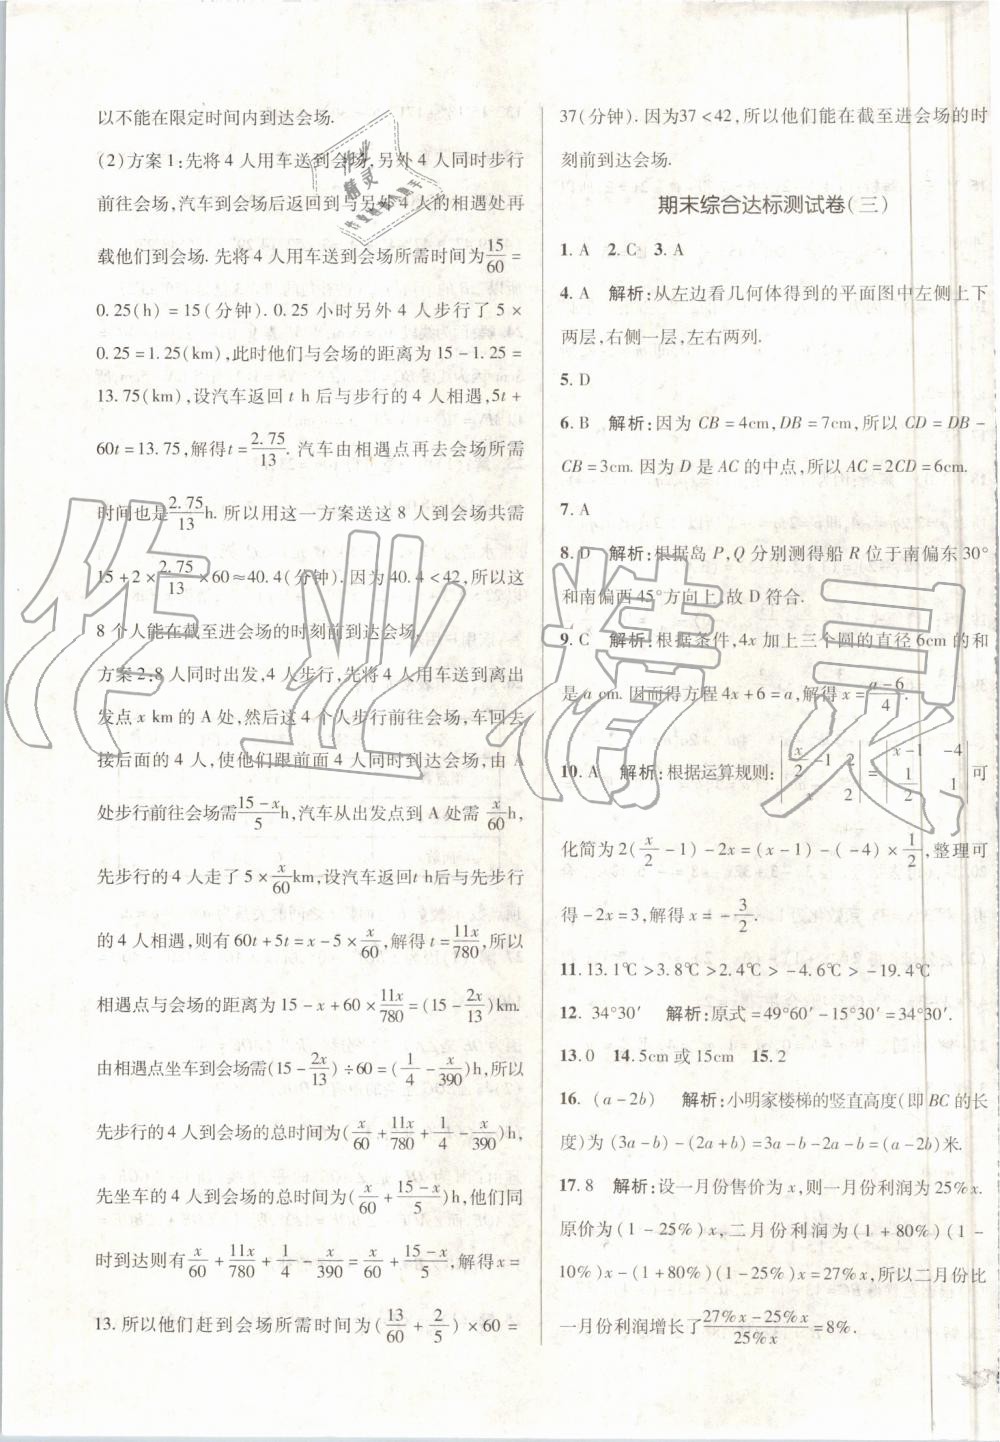 以不能在限定时间内到达会场.
(2)方案1:先将4人用车送到会场,另外4人同时步行
前往会场,汽车到会场后返回到与另外4人的相遇处再
载他们到会场. 先将4人用车送到会场所需时间为15/60=
0.25(h)=15(分钟). 0.25小时另外4人步行了5×
0.25=1.25(km),此时他们与会场的距离为15-1.25=
13.75(km),设汽车返回t h后与步行的4人相遇,5t+
60t=13.75,解得t=2.75/13. 汽车由相遇点再去会场所需
时间也是2.75/13h. 所以用这一方案送这8人到会场共需
15+2×2.75/13×60≈40.4(分钟). 因为40.4<42,所以这
8个人能在截至进会场的时刻前到达会场.
方案2:8人同时出发,4人步行,先将4人用车送到离出
发点x km的A处,然后这4个人步行前往会场,车回去
接后面的4人,使他们跟前面4人同时到达会场,由A
处步行前往会场需15-x/5h,汽车从出发点到A处需x/60h,
先步行的4人走了5×x/60km,设汽车返回t h后与先步行
的4人相遇,则有60t+5t=x-5×x/60,解得t=11x/780,所以
相遇点与会场的距离为15-x+60×11x/780=(15-2x/13)km.
由相遇点坐车到会场需(15-2x/13)÷60=(1/4-x/390)h,所以
先步行的4人到会场的总时间为(x/60+11x/780+1/4-x/390)h,
先坐车的4人到会场的总时间为(x/60+15-x/5)h,他们同
时到达则有x/60+11x/780+1/4-x/390=x/60+15-x/5,解得x=
13.所以他们赶到会场所需时间为(13/60+2/5)×60=
37(分钟). 因为37<42,所以他们能在截至进会场的时
刻前到达会场.
期末综合达标测试卷(三)
1. A 2. C 3. A
4. A 解析:从左边看几何体得到的平面图中左侧上下
两层,右侧一层,左右两列.
5. D
6. B 解析:因为CB=4cm,DB=7cm,所以CD=DB-
CB=3cm. 因为D是AC的中点,所以AC=2CD=6cm.
7. A
8. D 解析:根据岛P,Q分别测得船R位于南偏东30°
和南偏西45°方向上,故D符合.
9. C 解析:根据条件,4x加上三个圆的直径6cm的和
是a cm. 因而得方程4x+6=a,解得x=a-6/4.
10. A 解析:根据运算规则:|x/2-1 2 x 2|=|x-1 -4 1/2 1|可
化简为2(x/2-1)-2x=(x-1)-(-4)×1/2,整理可
得-2x=3,解得x=-3/2.
11. 13.1℃>3.8℃>2.4℃>-4.6℃>-19.4℃
12. 34°30′ 解析:原式=49°60′-15°30′=34°30′.
13. 0 14. 5cm或15cm 15. 2
16. (a-2b) 解析:小明家楼梯的竖直高度(即BC的长
度)为(3a-b)-(2a+b)=3a-b-2a-b=(a-2b)米.
17. 8 解析:设一月份售价为x,则一月份利润为25%x.
原价为(1-25%)x,二月份利润为(1+80%)(1-
10%)x-(1+80%)(1-25%)x=27%x,所以二月份比
一月份利润增长了27%x-25%x/25%x=8%.
作业精灵